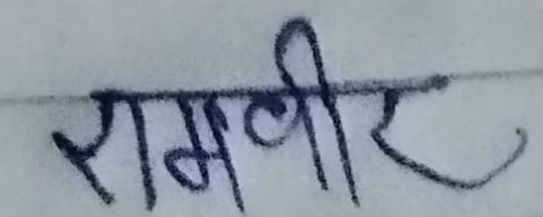 रामवीर